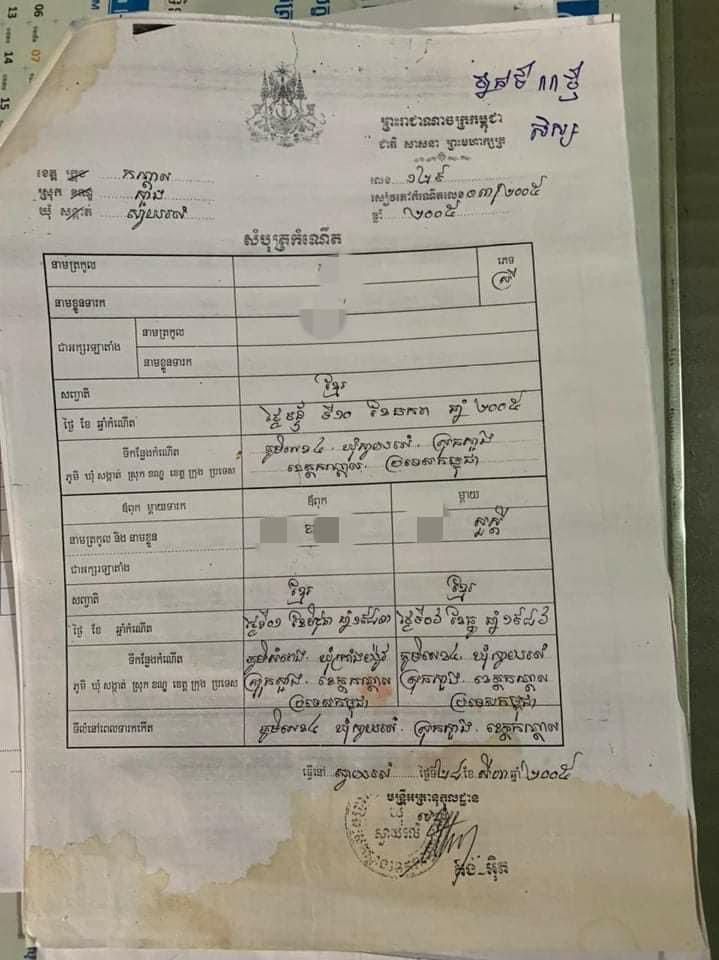 ព្រះរាជាណាចក្រកម្ពុជា
ជាតិ សាសនា ព្រះមហាក្សត្រ
ខេត្ត ក្រុង កណ្ដាល
ស្រុក ខណ្ឌ ស្អាង
ឃុំ សង្កាត់ ស្វាយរលំ
លេខ ១២៩
សៀវភៅកំណើតលេខ ០៣/២០០៥
ឆ្នាំ ២០០៥
សំបុត្រកំណើត
នាមត្រកូល
ភេទ
ស្រី
នាមខ្លួនទារក
ជាអក្សរឡាតាំង
នាមត្រកូល
នាមខ្លួនទារក
សញ្ជាតិ ខ្មែរ
ថ្ងៃ ខែ ឆ្នាំកំណើត ថ្ងៃ ចន្ទ ទី១០ ខែ មករា ឆ្នាំ ២០០៥
ទីកន្លែងកំណើត ភូមិលេខ៤ ឃុំស្វាយរលំ ស្រុកស្អាង
ភូមិ ឃុំ សង្កាត់ ស្រុក ខណ្ឌ ខេត្ត ក្រុង ប្រទេស ខេត្តកណ្ដាល ប្រទេសកម្ពុជា
ឪពុក ម្ដាយទារក ឪពុក ម្ដាយ
នាមត្រកូល និង នាមខ្លួន
ជាអក្សរឡាតាំង
សញ្ជាតិ ខ្មែរ ខ្មែរ
ថ្ងៃ ខែ ឆ្នាំកំណើត ថ្ងៃទី០១ ខែមិថុនា ឆ្នាំ១៩៨៣ ថ្ងៃទី០៦ ខែធ្នូ ឆ្នាំ១៩៨៦
ទីកន្លែងកំណើត ឃុំ ភូមិលេខ៤ ឃុំស្វាយរលំ
ភូមិ ឃុំ សង្កាត់ ស្រុក ខណ្ឌ ខេត្ត ក្រុង ប្រទេស ស្រុកស្អាង ខេត្តកណ្ដាល ស្រុកស្អាង ខេត្តកណ្ដាល
ប្រទេសកម្ពុជា ប្រទេសកម្ពុជា
ទីលំនៅពេលទារកកើត ភូមិលេខ៤ ឃុំស្វាយរលំ ស្រុកស្អាង ខេត្តកណ្ដាល
ធ្វើនៅ ស្វាយរលំ ថ្ងៃទី២៨ ខែ សីហា ឆ្នាំ ២០០៥
មន្ត្រីអត្រានុកូលដ្ឋាន
ឃុំ
ស្វាយរលំ